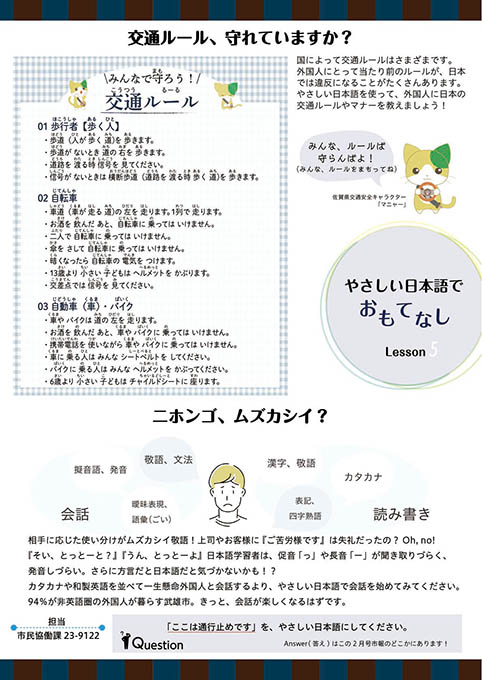 交通ルール、守れていますか？
国によって交通ルールはさまざまです。
外国人にとって当たり前のルールが、日本
では違反になることがたくさんあります。
やさしい日本語を使って、外国人に日本の
交通ルールやマナーを教えましょう！
\みんなで守ろう！/
交通ルール
01 歩行者【歩く人】
・歩道（人が歩く道）を歩きます。
・歩道がないとき 道の右を歩きます。
・道路を渡る時 信号を見てください。
・信号がないときは 横断歩道（道路を渡る時 歩く道）を歩きます。
02 自転車
・車道（車が走る道）の左を走ります。1列で走ります。
・お酒を飲んだあと、自転車に乗ってはいけません。
・二人で自転車に乗ってはいけません。
・傘をさして自転車に乗ってはいけません。
・暗くなったら自転車の電気をつけます。
・13歳より小さい子どもはヘルメットをかぶります。
・交差点では信号を見てください。
03 自動車（車）・バイク
・車やバイクは道の左を走ります。
・お酒を飲んだあと、車やバイクに乗ってはいけません。
・携帯電話を使いながら車やバイクに乗ってはいけません。
・車に乗る人はみんなシートベルトをしてください。
・バイクに乗る人はみんなヘルメットをかぶってください。
・6歳より小さい子どもはチャイルドシートに座ります。
みんな、ルールば
守らんばよ！
(みんな、ルールをまもってね)
佐賀県交通安全キャラクター
「マニャー」
やさしい日本語で
おもてなし
Lesson 5
ニホンゴ、ムズカシイ？
擬音語、発音
敬語、文法
漢字、敬語
カタカナ
会話
曖昧表現、
語彙(ごい)
表記、
四字熟語
読み書き
相手に応じた使い分けがムズカシイ敬語！上司やお客様に『ご苦労様です』は失礼だったの？ Oh, no!
『そい、とっとーと？』『うん、とっとーよ』日本語学習者は、促音「っ」や長音「ー」が聞き取りづらく、
発音しづらい。さらに方言だと日本語だと気づかないかも！？
カタカナや和製英語を並べて一生懸命外国人と会話するより、やさしい日本語で会話を始めてみてください。
94%が非英語圏の外国人が暮らす武雄市。きっと、会話が楽しくなるはずです。
担当
市民協働課 23-9122
「ここは通行止めです」を、やさしい日本語にしてください。
Question
Answer(答え)はこの2月号市報のどこかにあります！